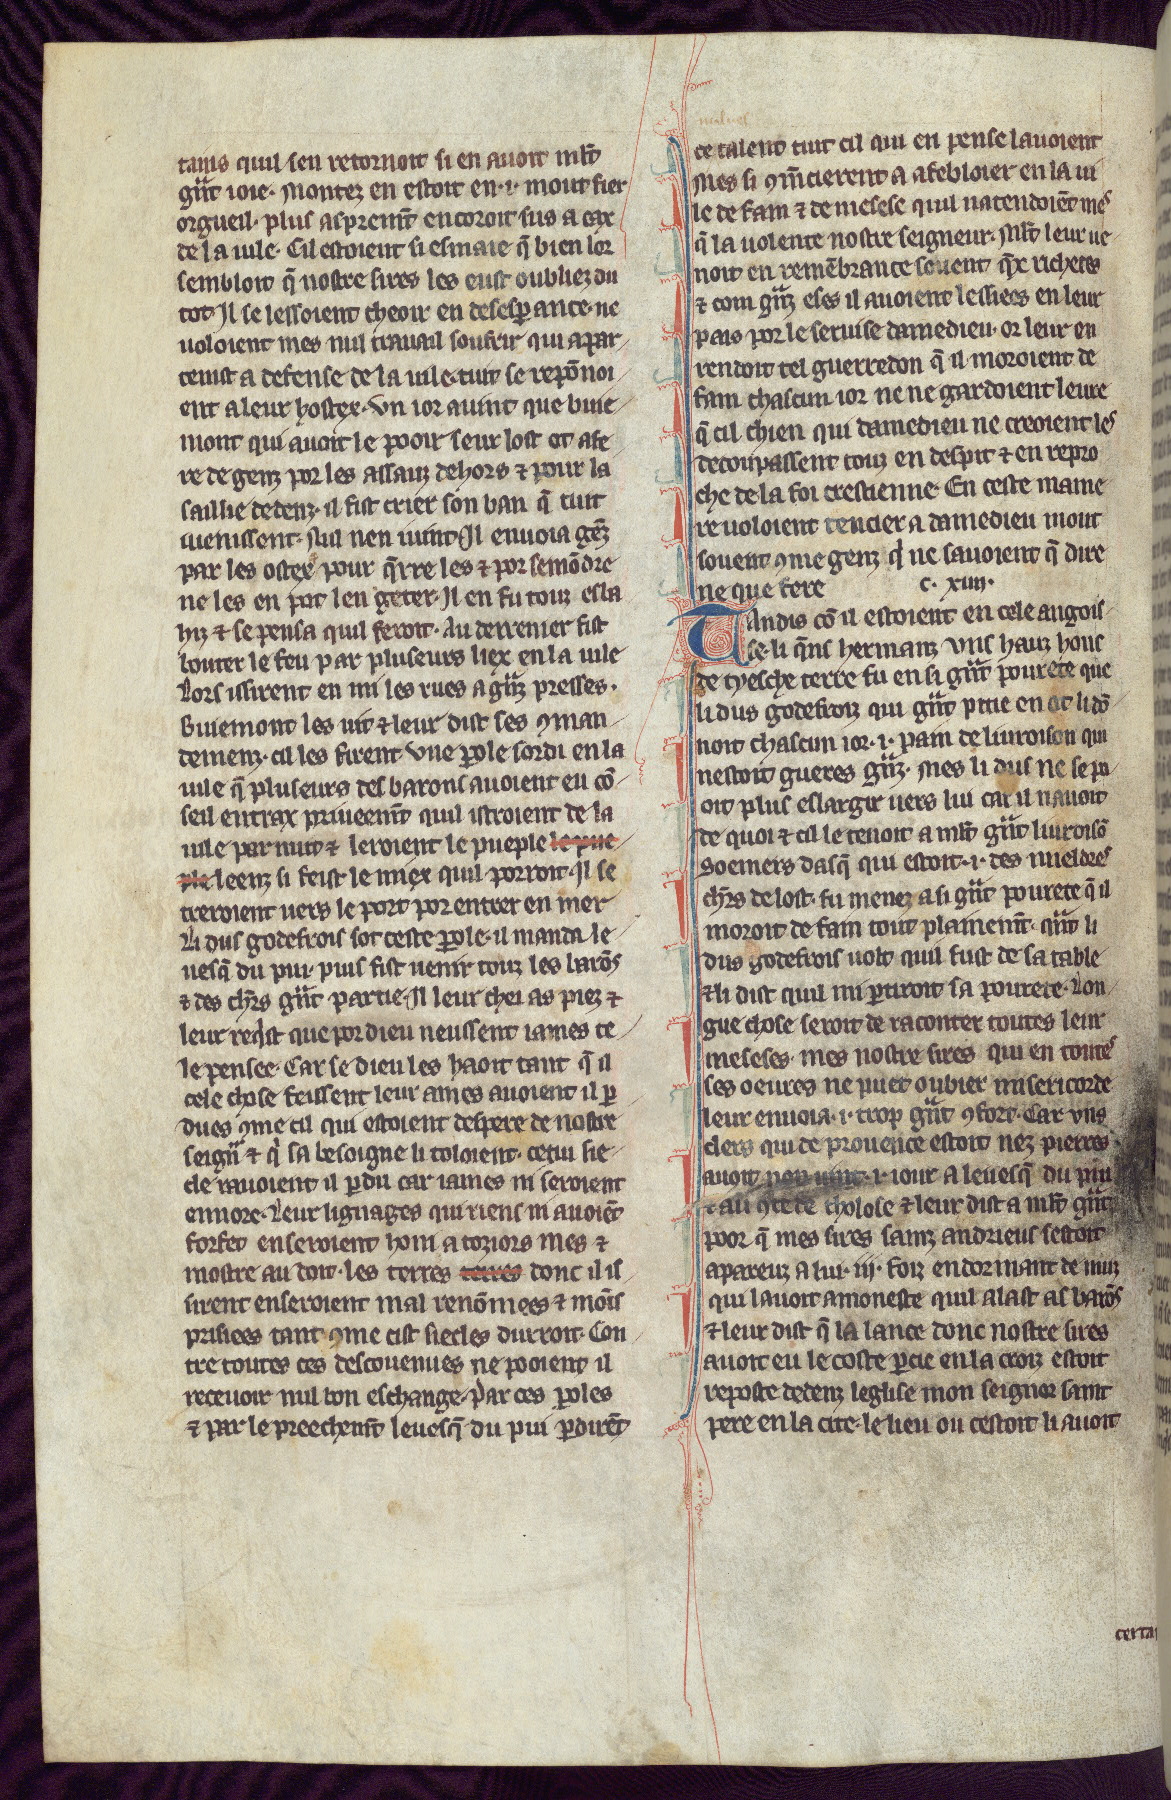 tains quil sen retornoit si en auoit ml̃t
gñt ioie. Montez en estoit en .i. mout fier
orgueil. plus aspremt̃ en coroit sus a cax
de la uile. Cil estoient si esmaie q̃ bien lor
sembloit q̃ nostre sires les eust oubliez du
tot Il se lessoient cheoir en desesp̱ance. ne
uoloient mes nul trauail soufrir qui apar
tenist a defense de la uile. tuit se repõnoi
ent a leur hostex. Vn ior auint que buie
mont qui auoit le pooir seur lost ot afe
re de genz por les assauz dehors ⁊ pour la
saillie dedenz. il fist crier son ban q̃ tuit
uienissent. Nus nen uint Il enuoia gẽz
par les ostex pour q̃rre les ⁊ por semõdre
ne les en pot len geter. Il en fu touz esla
hiz ⁊ se pensa quil feroit. Au derrenier fist
bouter le feu par pluseurs liex en la uile
Lors issirent en mi les rues a gñz presses.
Buiemont les uit ⁊ leur dist ses ꝯman
demenz. cil les firent Vne p̱ole sordi en la
uile q̃ pluseurs des barons auoient eu cõ
seil entrax priueemt̃ quil istroient de la
uile par nuit ⁊ leroient le pueple le pue
ple leenz si feist le miex quil porroit. Il se
treroient uers le port por entrer en mer
Li dus godefrois sot ceste p̱ole. il manda le
uesq̃ du pui. puis fist uenir touz les barõs
⁊ des chr̃s gñt partie. Il leur chei as piez ⁊
leur req̇st que por dieu neussent iames ce
le pensee. Car se dieu les haoit tant q̃ il
cele chose feissent leur ames auoient il p̱
dues ꝯme cil qui estoient despere de nostre
seigñ ⁊ q̇ sa besoigne li toloient. cetui sie
cle rauoient il p̱du car iames ni seroient
ennore. Leur lignages qui riens ni auoiẽt
forfet en seroient honi a toziors mes ⁊
mostre au doit. les terres terres donc il is
sirent en seroient mal renõmees ⁊ moĩs
prisiees tant ꝯme cist siecles durroit. Con
tre toutes ces descouenues ne pooient il
receuoir nul bon eschange. Par ces p̱oles
⁊ par le preechemt̃ leuesq̃ du pui p̱dirẽt
ce talent tuit cil qui en pense lauoient
Mes si ꝯm̃cierent a afebloier en la ui
le de fam ⁊ de mesese quil natendoiẽt mes
q̃ la uolente nostre seigneur. Ml̃t leur ue
noit en remẽbrance souent q̃x richeces
⁊ com gñz eses il auoient lessiees en leur
pais por le seruise damedieu. or leur en
rendoit tel guerredon q̃ il moroient de
fam chascun ior ne ne gardoient leure
q̃ cil chien qui damedieu ne creoient les
decoupassent touz en despit ⁊ en repro
che de la foi crestienne. En ceste manie
re uoloient tencier a damedieu mout
souent ꝯme genz q̇ ne sauoient q̃ dire
ne que fere c. xiiii.
Tandis cõ il estoient en cele angois
se. li q̃ns hermanz vns hauz hons
de tyesche terre fu en si gñt pourete que
li dus godefroiz qui gñt pitie en ot li dõ
noit chascun ior .i. pain de liuroison qui
nestoit gueres gñz. Mes li dus ne se po
oit plus eslargir uers lui car il nauoit
de quoi ⁊ cil le tenoit a ml̃t gñt liuroisõ
Goemers dasq̃ qui estoit .i. des mieldres
chr̃s de lost. fu menez a si gñt pourete q̃ il
moroit de fain tout plainemt̃. qñt li
dus godefrois uolt quil fust de sa table
⁊ li dist quil mi p̱tiroit sa pourete. Lon
gue chose seroit de raconter toutes leur
meseses. mes nostre sires qui en toutes
ses oeures ne puet oublier misericorde
leur enuoia .i. trop gñt ꝯfort. Car vns
clers qui de prouence estoit nez pierres
auoit non uint .i. iour a leuesq̃ du pui
⁊ au ꝯte de tholose ⁊ leur dist a ml̃t gñt
poor q̃ mes sires sainz andrieus sestoit
apareuz a lui .iii. foiz en dormant de nuiz
qui lauoit amoneste quil alast as barõs
⁊ leur dist q̃ la lance donc nostre sires
auoit eu le coste p̱cie en la croiz estoit
reposte dedenz leglise mon seignor saint
pere en la cite. le lieu ou cestoit li auoit